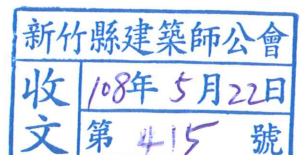 新竹縣建築師公會
收文
108年5月22日
第415號